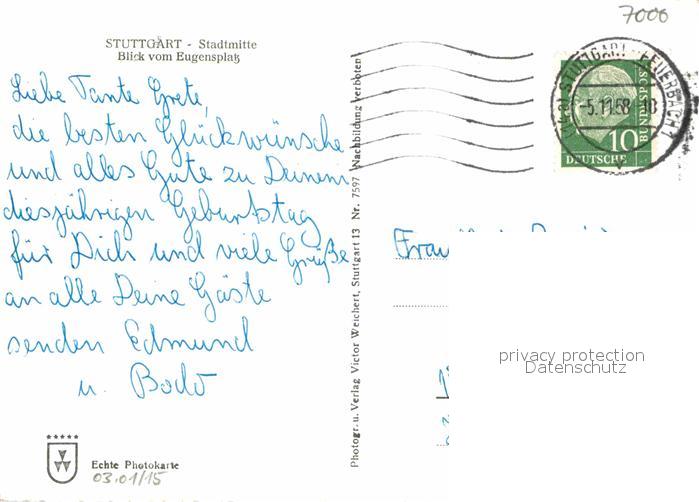 7000
STUTTGART - Stadtmitte
Blick vom Eugensplatz
Liebe Tante Grete,
die besten Glückwünsche
und alles Gute zu Deinem
diesjährigen Geburtstag
für Dich und viele Grüße
an alle Deine Gäste
senden Edmund
u. Bodo
Echte Photokarte
03.01/15
Photogr. u. Verlag Victor Weichert, Stuttgart 13 Nr. 7597 Nachbildung verboten
STUTTGART-FEUERBACH 1
-5.11.58-18
10
DEUTSCHE
BUNDESPOST
Frau
privacy protection
Datenschutz